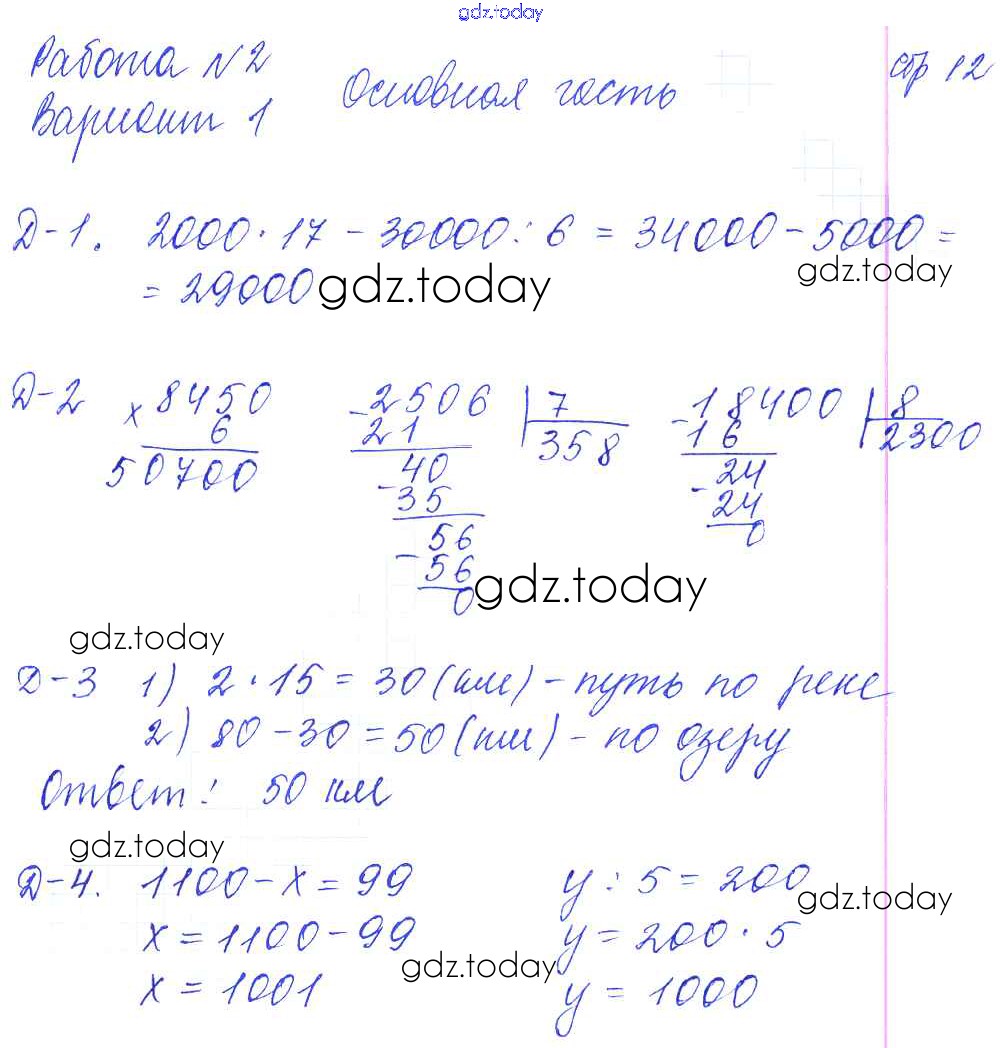 gdz.today
Работа №2 стр 12
Вариант 1 Основная часть
Д-1. 2000·17 - 30000:6 = 34000 - 5000 =
gdz.today
= 29000 gdz.today
Д-2 × 8450 - 2506 | 7 - 18400 | 8
6 21 358 16 2300
50700 40 24
- 35 - 24
56 0
- 56
0 gdz.today
gdz.today
Д-3 1) 2·15 = 30 (км) - путь по реке
2) 80 - 30 = 50 (км) - по озеру
Ответ: 50 км
gdz.today
Д-4. 1100 - x = 99 y : 5 = 200
gdz.today
x = 1100 - 99 y = 200·5
gdz.today
x = 1001 y = 1000